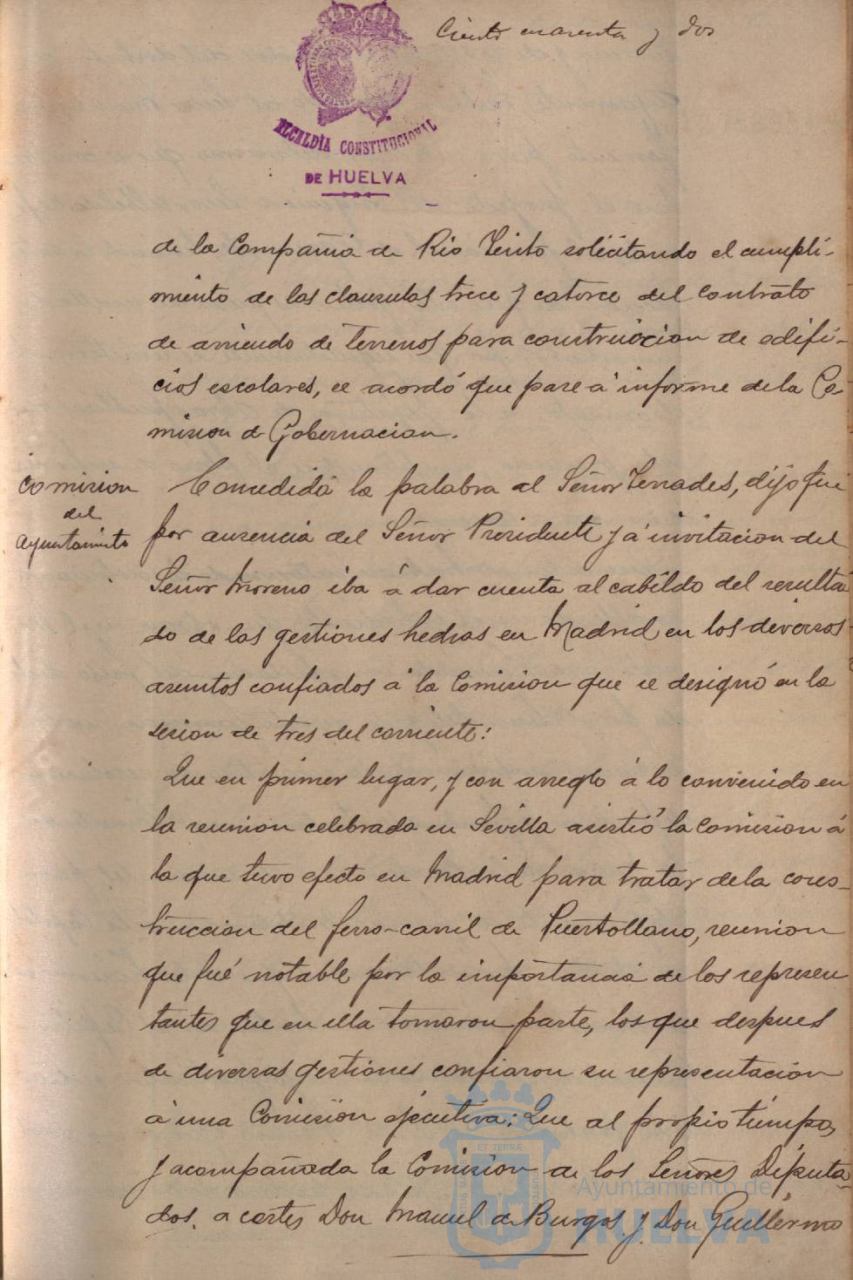 Ciento cuarenta y dos
ALCALDÍA CONSTITUCIONAL
DE HUELVA
de la Compañia de Rio Tinto solicitando el cumpli-
miento de las clausulas trece y catorce del contrato
de arriendo de terrenos para construccion de edifi-
cios escolares, se acordó que pase á informe de la Co-
mision de Gobernacion.
Comision
del
Ayuntamiento
Concedida la palabra al Señor Terrades, dijo que
por ausencia del Señor Presidente y á invitacion del
Señor Moreno iba á dar cuenta al cabildo del resulta
do de las gestiones hechas en Madrid en los diversos
asuntos confiados á la Comision que se designó en la
sesion de tres del corriente:
Que en primer lugar, y con arreglo á lo convenido en
la reunion celebrada en Sevilla asistió la comision á
la que tuvo efecto en Madrid para tratar de la cons-
truccion del ferro-carril de Puertollano, reunion
que fué notable por la importancia de los represen
tantes que en ella tomaron parte, los que despues
de diversas gestiones confiaron su representacion
á una Comision ejecutiva: Que al propio tiempo,
y acompañada la Comision de los Señores Diputa-
dos, a cortes Don Manuel de Burgos y Don Guillermo
Ayuntamiento de
HUELVA